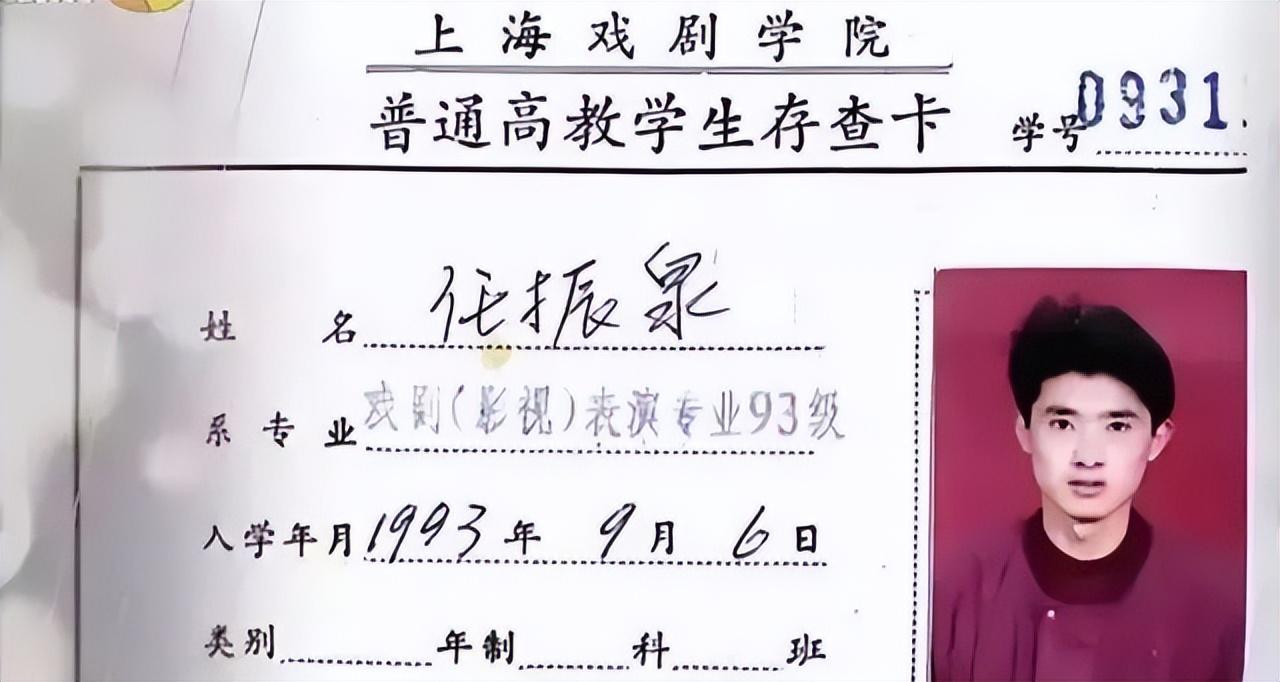 上海戏剧学院
普通高教学生存查卡 学号0931
姓名 任振泉
系专业 戏剧(影视)表演专业93级
入学年月 1993年9月6日
类别 年制 科 班